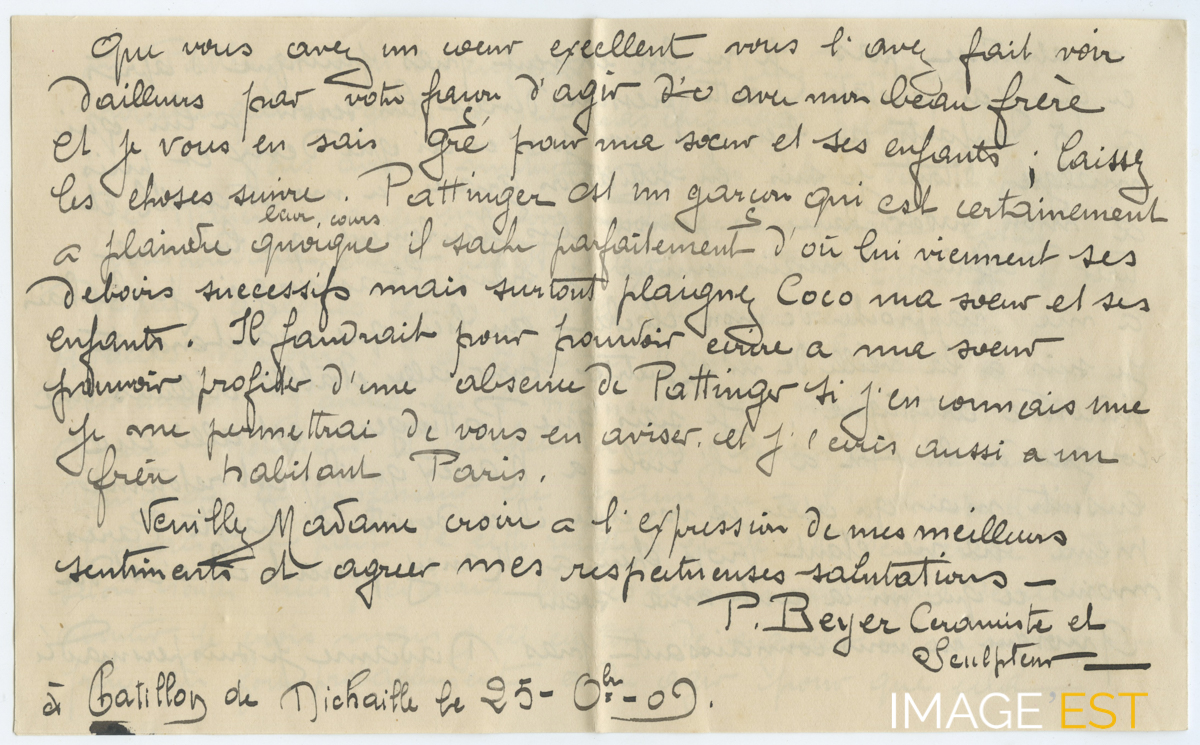 Que vous avez un coeur excellent vous l'avez fait voir
d'ailleurs par votre façon d'agir avec mon beau frère
Et je vous en sais gré pour ma soeur et ses enfants ; laissez
les choses suivre . Pattinger est un garçon qui est certainement
leur cours
a plaindre quoique il sache parfaitement d'où lui viennent ses
deboirs successifs mais surtout plaignez Coco ma soeur et ses
enfants . Il faudrait pour pouvoir ecrire a ma soeur
pouvoir profiter d'une absence de Pattinger si j'en connais une
je me permettrai de vous en aviser. et j'ecris aussi a un
frère habitant Paris .
Veuillez Madame croire a l'expression de mes meilleurs
sentiments et agreer mes respectueuses salutations —
P. Beyer Ceramiste et
Sculpteur —
à Chatillon de Michaille le 25 - 8bre - 09 .
IMAGE'EST